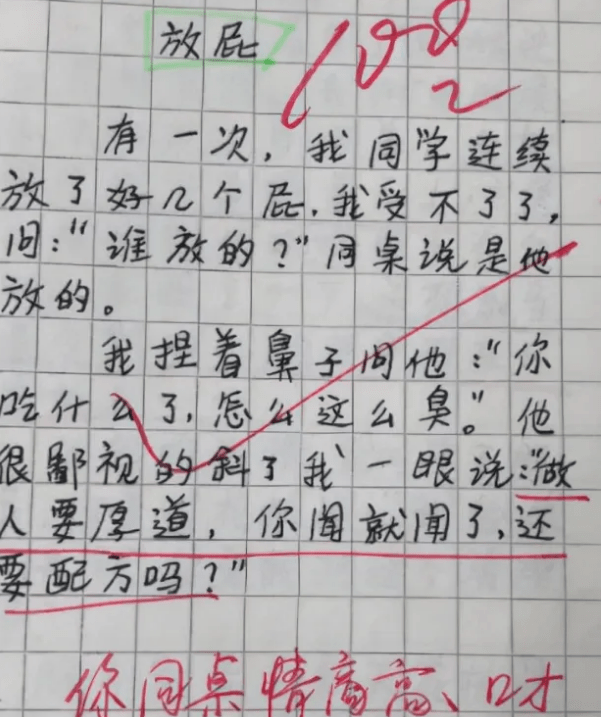 放屁
100
有一次，我同学连续
放了好几个屁，我受不了了，
问：“谁放的？”同桌说是他
放的。
我捏着鼻子问他：“你
吃什么了，怎么这么臭。”他
很鄙视的斜了我一眼说：“做
人要厚道，你闻就闻了，还
要配方吗？”
你同桌情商高、口才